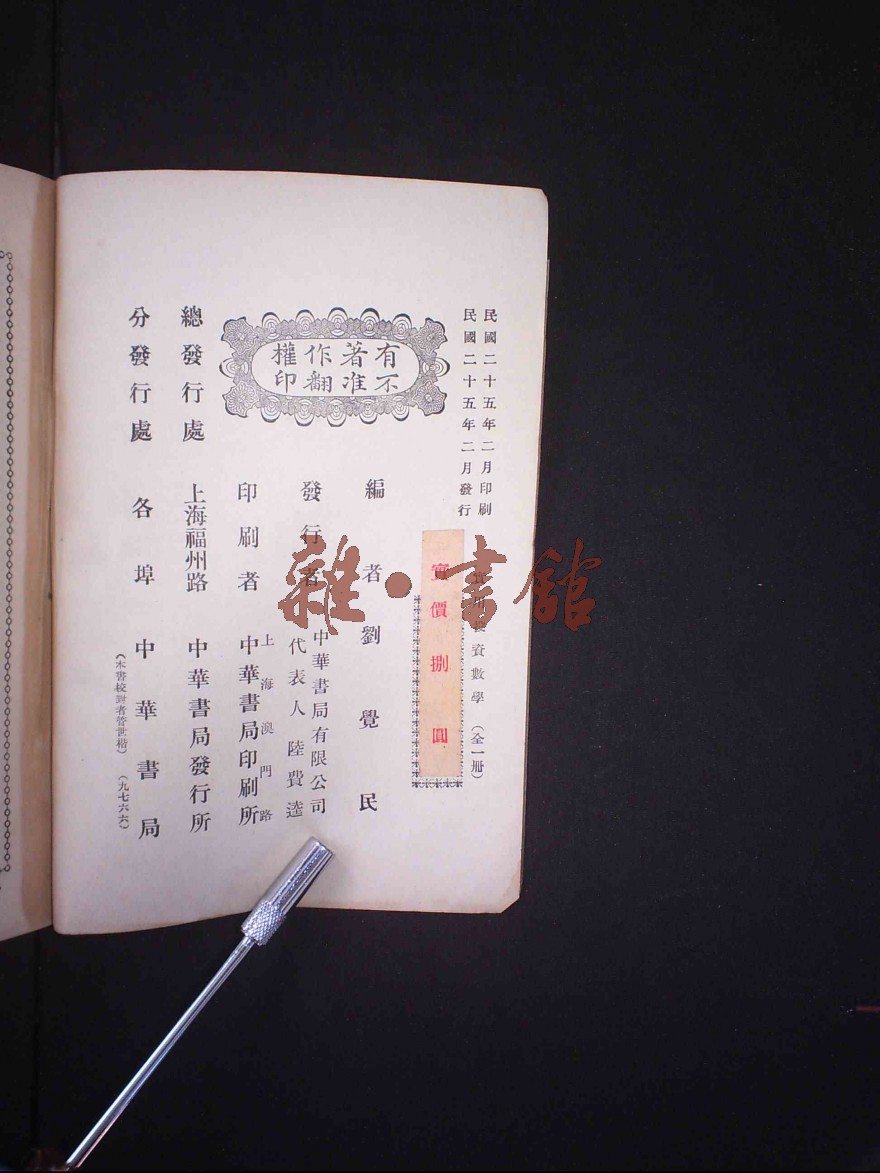 民國二十五年二月印刷
民國二十五年二月發行
投資數學（全一册）
實價捌圓
有著作權
不准翻印
編者劉覺民
發行者
中華書局有限公司
代表人陸費逵
印刷者
上海澳門路
中華書局印刷所
總發行處
上海福州路
中華書局發行所
分發行處
各埠中華書局
（本書校對者管世楷）（九七六六）
雜·書館